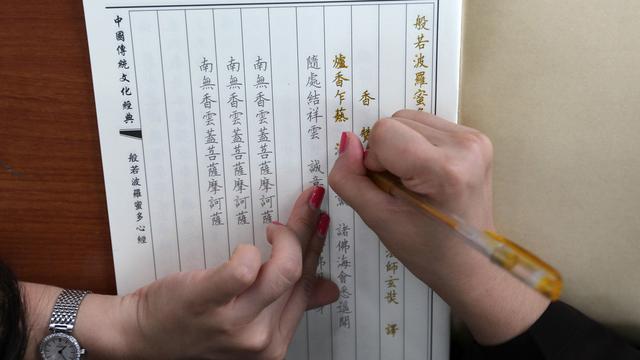 般若波羅蜜
師玄奘 譯
香
爐香乍爇 諸佛海會悉遙聞
隨處結祥雲 誠意
南無香雲蓋菩薩摩訶薩
南無香雲蓋菩薩摩訶薩
南無香雲蓋菩薩摩訶薩
中國傳統文化經典
般若波羅蜜多心經